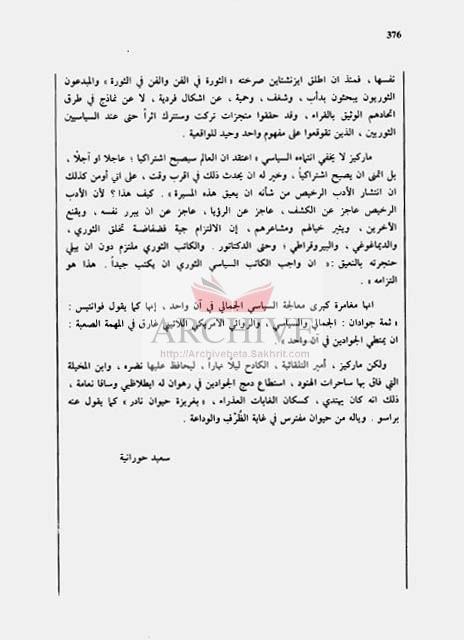 376
نفسها ، فمنذ ان اطلق ايزنشتاين صرخته « الثورة في الفن والفن في الثورة » والمبدعون
الثوريون يبحثون بدأب ، وشغف ، وحمية ، عن اشكال فردية ، لا عن نماذج في طرق
اتحادهم الوثيق بالقراء ، وقد حققوا منجزات تركت وستترك اثراً حتى عند السياسيين
الثوريين ، الذين تقوقعوا على مفهوم واحد وحيد للواقعية .
ماركيز لا يخفي انتماءه السياسي « اعتقد ان العالم سيصبح اشتراكيا ؛ عاجلا او آجلًا ،
بل اتمنى ان يصبح اشتراكياً ، وخير له ان يحدث ذلك في اقرب وقت ، على اني أومن كذلك
ان انتشار الأدب الرخيص من شأنه ان يعيق هذه المسيرة » . كيف هذا ؟ لأن الأدب
الرخيص عاجز عن الكشف ، عاجز عن الرؤيا ، عاجز عن ان يبرر نفسه ، ويقنع
الآخرين ، ويثير خيالهم ومشاعرهم ، إن الالتزام جبة فضفاضة تخلق الثوري ،
والديماغوغي ، والبيروقراطي ؛ وحتى الدكتاتور . والكاتب الثوري ملتزم دون ان يبلي
حنجرته بالنعيق :« ان واجب الكاتب السياسي الثوري ان يكتب جيداً . هذا هو
التزامه » .
انها مغامرة كبرى معالجة السياسي الجمالي في آن واحد ، إنها كما يقول فوانتيس :
« ثمة جوادان : الجمالي والسياسي ، والروائي الامريكي اللاتيني غارق في المهمة الصعبة :
ان يمتطي الجوادين في آن واحد »
ARCHIVE
http://Archivebeta.Sakhrit.com
ولكن ماركيز ، أمير التلقائية ، الكادح ليلًا نهاراً ، ليحافظ عليها نضره ، وابن المخيلة
التي فاق بها ساحرات الهنود ، استطاع دمج الجوادين في رهوان له ايطلاظبي وساقا نعامة ،
ذلك انه كان يهتدي ، كسكان الغابات العذراء ، « بغريزة حيوان نادر » كما يقول عنه
براسو . وياله من حيوان مفترس في غابة الظُرْف والوداعة .
سعيد حورانية